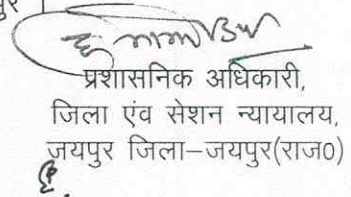 प्रशासनिक अधिकारी,
जिला एंव सेशन न्यायालय,
जयपुर जिला–जयपुर(राज0)